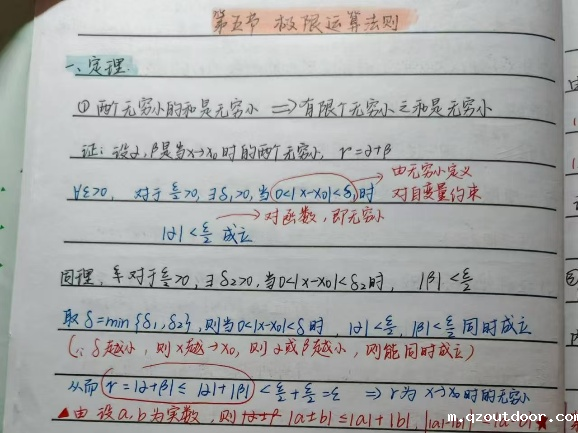 第五节 极限运算法则
一、定理
① 两个无穷小的和是无穷小 ⟹ 有限个无穷小之和是无穷小
证: 设α,β是当x→x₀时的两个无穷小, r=α+β
∀ε>0, 对于ε/2>0, ∃δ₁>0, 当0<|x-x₀|<δ₁时
由无穷小定义
对自变量约束
|α|<ε/2 成立
→ 对函数, 即无穷小
同理, 对于ε/2>0, ∃δ₂>0, 当0<|x-x₀|<δ₂时, |β|<ε/2
取δ=min{δ₁,δ₂}, 则当0<|x-x₀|<δ时, |α|<ε/2, |β|<ε/2 同时成立
(∵δ越小, 则x越→x₀, 则α或β越小, 则能同时成立)
从而 r=|α+β|≤|α|+|β|<ε/2+ε/2=ε ⟹ r为x→x₀时的无穷小
▲由设a,b为实数, 则 |a±b|≤|a|+|b|,
m.qzoutdoor.com